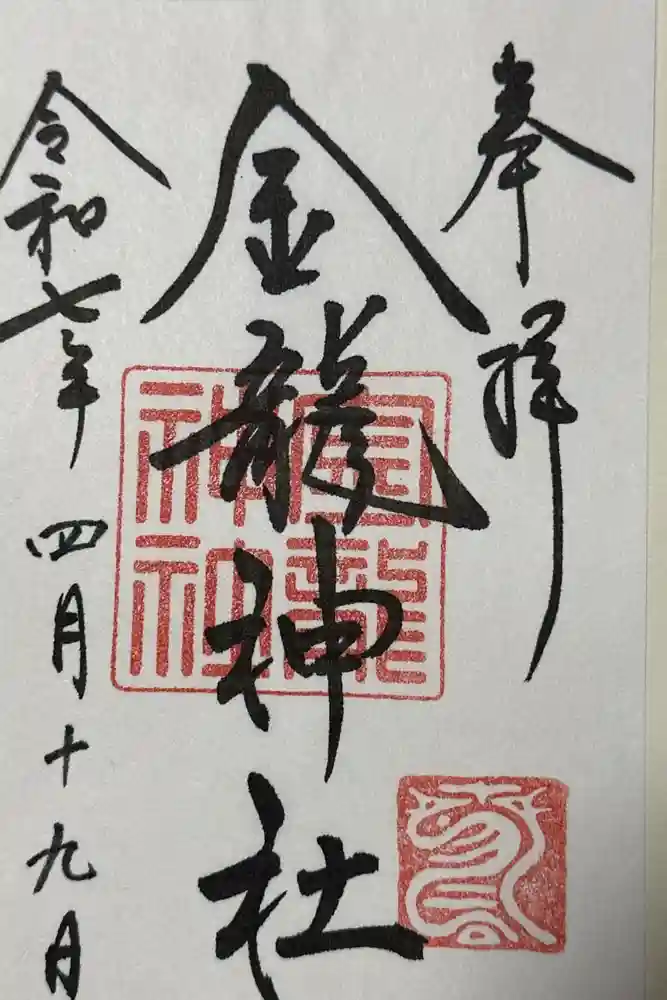 奉拝
金龍神社
金龍神社
令和七年四月十九日